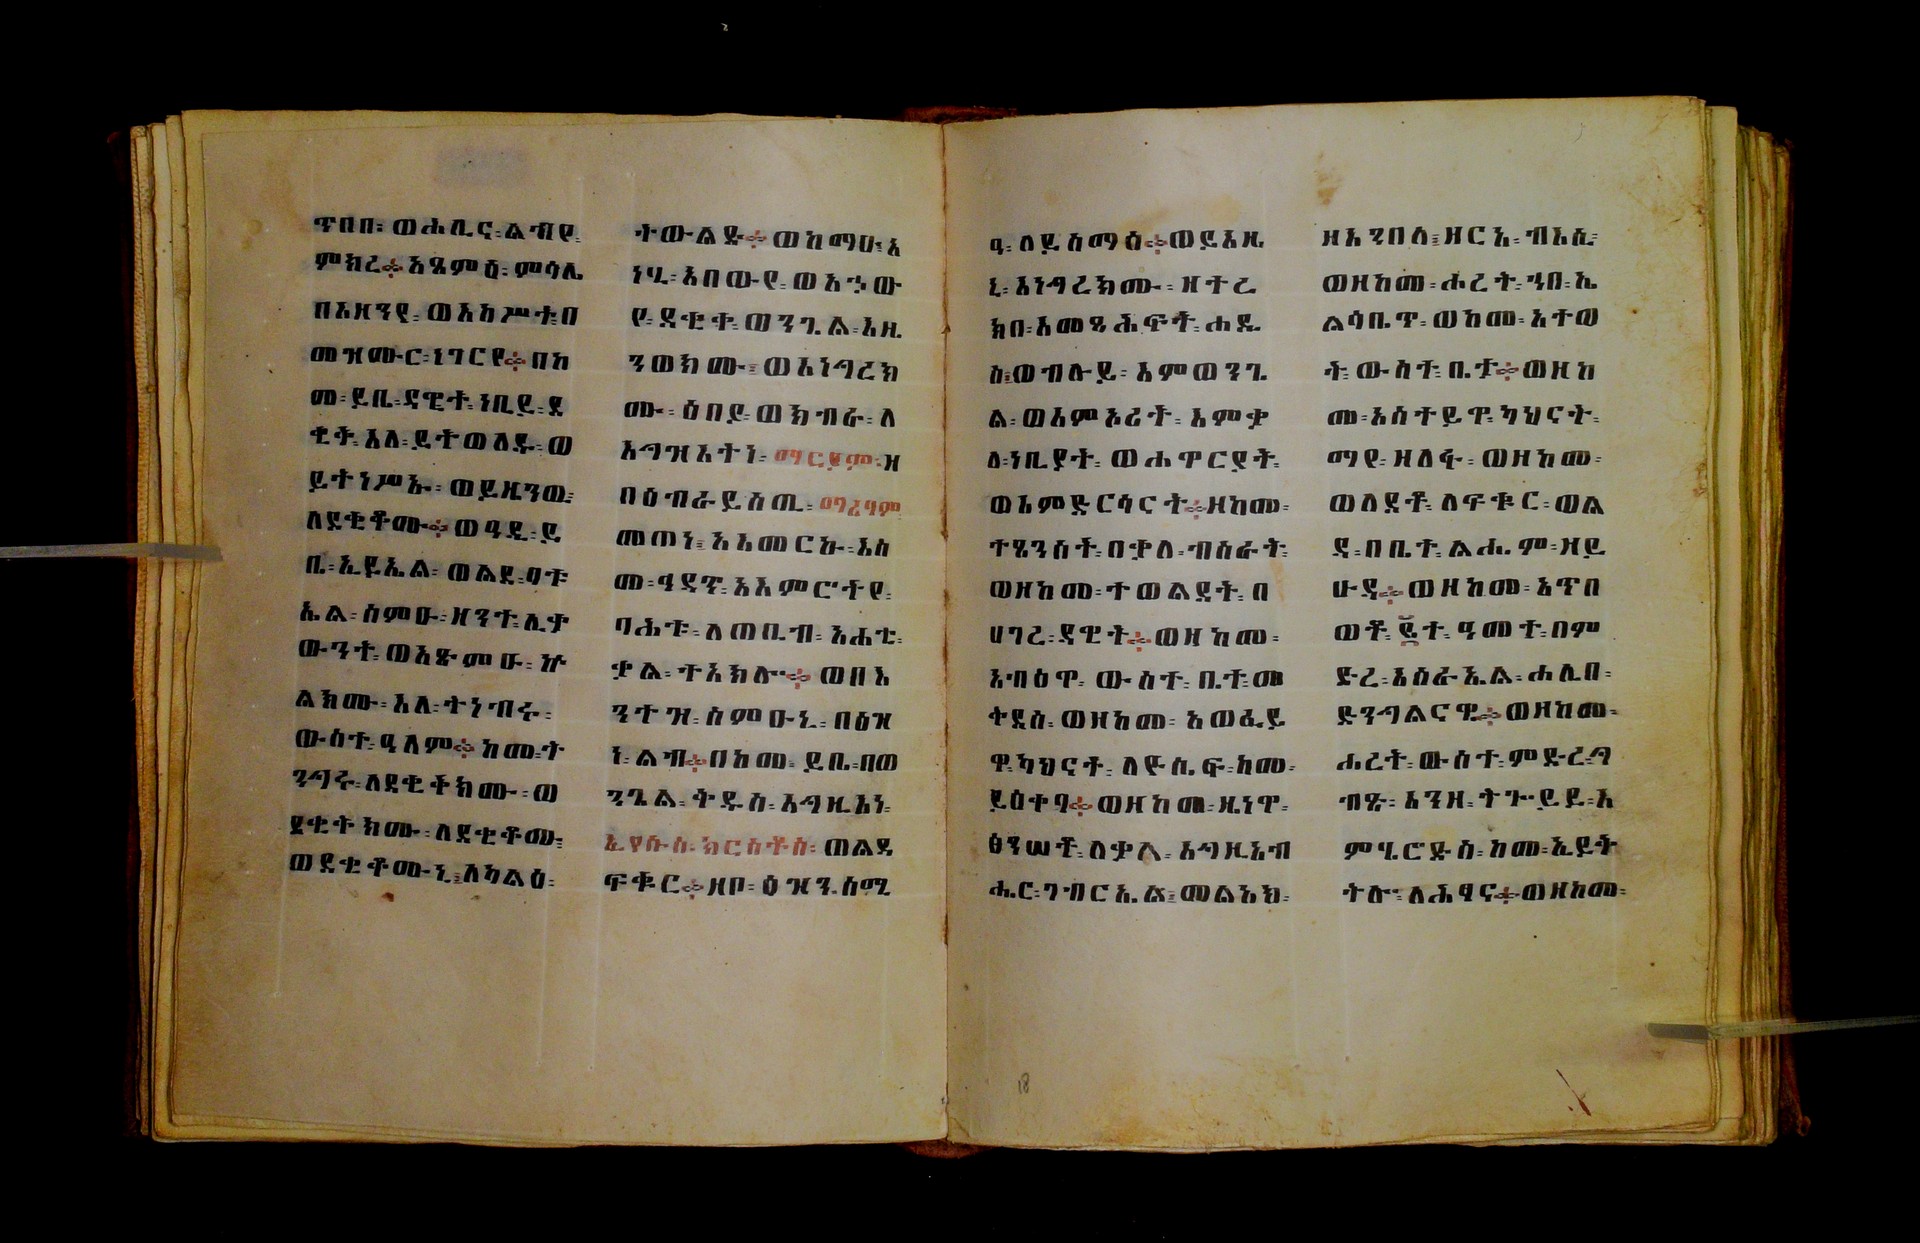 ጥበበ፡ ወሐሊና፡ ልብየ፡
ምክረ፨ አፄምዕ፡ ምሳሌ
በእዝንየ፡ ወእከሥት፡ በ
መዝሙር፡ ነገርየ፨ በከ
መ፡ ይቤ፡ ዳዊት፡ ነቢይ፡ ደ
ቂቅ፡ እለ፡ ይተወለዱ፡ ወ
ይተነሥኡ፡ ወይዜንው፡
ለደቂቆሙ፨ ወዓዲ፡ ይ
ቤ፡ ኢዩኤል፡ ወልደ፡ ባቱ
ኤል፡ ስምዑ፡ ዘንተ፡ ሊቃ
ውንት፡ ወአፅምዑ፡ ኵ
ልክሙ፡ እለ፡ ትነብሩ፡
ውስተ፡ ዓለም፨ ከመ፡ ት
ንግሩ፡ ለደቂቅክሙ፡ ወ
ደቂቅክሙ፡ ለደቂቆሙ፡
ወደቂቆሙኒ፡ ለካልዕ፡
ተውልድ፨ ወከማሁ፡ እ
ነሂ፡ አበውየ፡ ወአኃው
የ፡ ደቂቀ፡ ወንጌል፡ እዜ
ንወክሙ፡ ወእነግረክ
ሙ፡ ዕበይ፡ ወክብራ፡ ለ
እግዝእትነ፡ ማርያም፡ ዘ
በዕብራይስጢ፡ ማሪሃም
መጠነ፡ አእመርኩ፡ እስ
መ፡ ዓዳጥ፡ አእምሮትየ፡
ባሕቱ፡ ለጠቢብ፡ አሐቲ፡
ቃል፡ ተአክሎ፨ ወበእ
ንተዝ፡ ስምዑኒ፡ በዕዝ
ነ፡ ልብ፨ በከመ፡ ይቤ፡ በወ
ንጌል፡ ቅዱስ፡ እግዚእነ፡
ኢየሱስ፡ ክርስቶስ፡ ወልደ
ፍቁር፨ ዘቦ፡ ዕዝን፡ ሰሚ
ዓ፡ ለይስማዕ፨ ወይእዜ
ኒ፡ እነግረክሙ፡ ዘተረ
ክበ፡ እመፄሕፍት፡ ሐዲ
ስ፡ ወብሉይ፡ እምወንጌ
ል፡ ወእምኦሪት፡ እምቃ
ለ፡ ነቢያት፡ ወሐዋርያት፡
ወእምድርሳናት፨ ዘከመ፡
ተፄንስት፡ በቃለ፡ ብስራት፡
ወዘከመ፡ ተወልደት፡ በ
ሀገረ፡ ዳዊት፨ ወዘከመ፡
አብዕዋ፡ ውስተ፡ ቤተ፡ መ
ቅደስ፡ ወዘከመ፡ አወፈይ
ዋ፡ ካህናት፡ ለዮሴፍ፡ ከመ፡
ይዕቀባ፨ ወዘከመ፡ ዜነዋ፡
ፅንሠቶ፡ ለቃል፡ እግዚአብ
ሔር፡ ገብርኤል፡ መልአክ፡
ዘእንበለ፡ ዘርአ፡ ብእሲ፡
ወዘከመ፡ ሐረት፡ ኀበ፡ ኤ
ልሳቤጥ፡ ወከመ፡ አተወ
ት፡ ውስተ፡ ቤታ፨ ወዘከ
መ፡ አስተይዋ፡ ካህናት፡
ማየ፡ ዘለፋ፡ ወዘከመ፡
ወለደቶ፡ ለፍቁር፡ ወል
ዳ፡ በቤተ፡ ልሔም፡ ዘይ
ሁዳ፨ ወዘከመ፡ አጥበ
ወቶ፡ ፪ተ፡ ዓመተ፡ በም
ድረ፡ እስራኤል፡ ሐሊበ፡
ድንግልናዊ፨ ወዘከመ፡
ሐረት፡ ውስተ፡ ምድረ፡ ግ
ብፅ፡ እንዘ፡ ትጕይይ፡ እ
ምሄሮድስ፡ ከመ፡ ኢይት
ትሎ፡ ለሕፃና፨ ወዘከመ፡
18